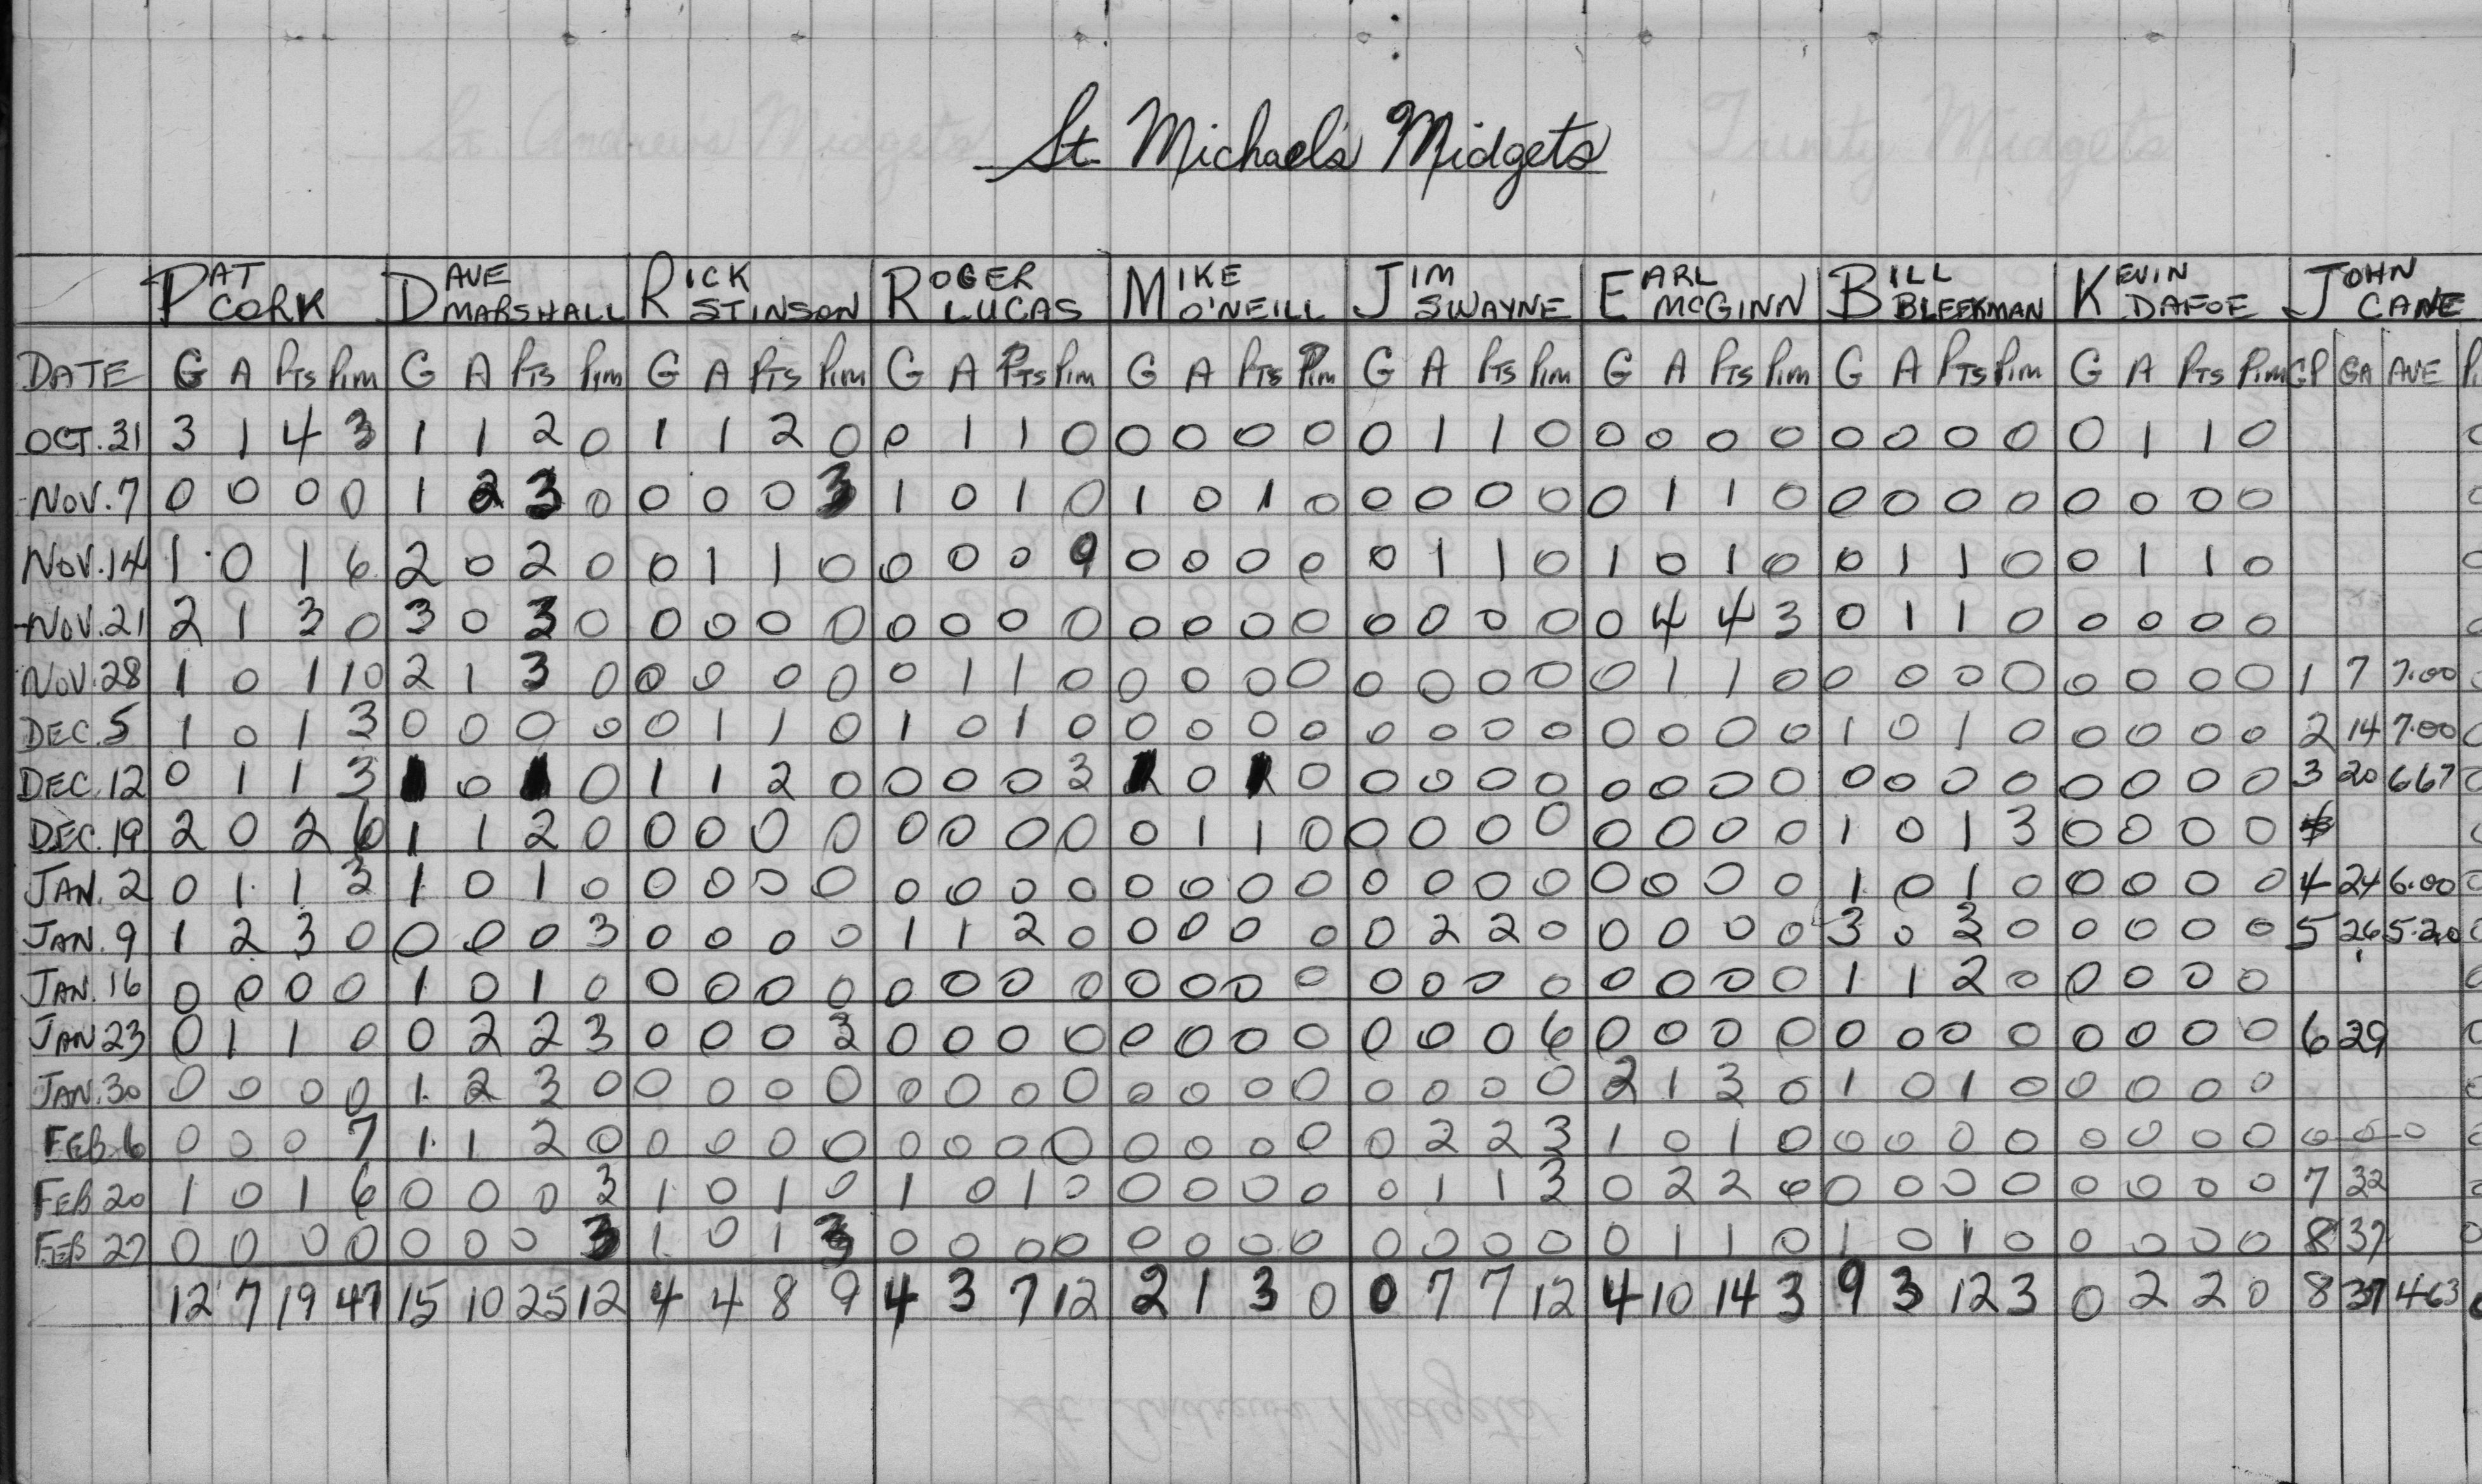 St. Michael's Midgets
PAT CORK DAVE MARSHALL RICK STINSON ROGER LUCAS MIKE O'NEILL JIM SWAYNE EARL McGINN BILL BLEEKMAN KEVIN DAFOE JOHN CANE
DATE G A Pts Pim G A Pts Pim G A Pts Pim G A Pts Pim G A Pts Pim G A Pts Pim G A Pts Pim G A Pts Pim G A Pts Pim GP GA AVE
OCT. 31 3 1 4 3 1 1 2 0 1 1 2 0 0 1 1 0 0 0 0 0 0 1 1 0 0 0 0 0 0 0 0 0 0 1 1 0
NOV. 7 0 0 0 0 1 2 3 0 0 0 0 3 1 0 1 0 1 0 1 0 0 0 0 0 0 1 1 0 0 0 0 0 0 0 0 0
NOV. 14 1 0 1 6 2 0 2 0 0 1 1 0 0 0 0 9 0 0 0 0 0 1 1 0 1 0 1 0 0 1 1 0 0 1 1 0
NOV. 21 2 1 3 0 3 0 3 0 0 0 0 0 0 0 0 0 0 0 0 0 0 0 0 0 0 4 4 3 0 1 1 0 0 0 0 0
NOV. 28 1 0 1 10 2 1 3 0 0 0 0 0 0 1 1 0 0 0 0 0 0 0 0 0 0 1 1 0 0 0 0 0 0 0 0 0 1 7 7.00
DEC. 5 1 0 1 3 0 0 0 0 0 1 1 0 1 0 1 0 0 0 0 0 0 0 0 0 0 0 0 0 1 0 1 0 0 0 0 0 2 14 7.00
DEC. 12 0 1 1 3 1 0 1 0 1 1 2 0 0 0 0 3 1 0 1 0 0 0 0 0 0 0 0 0 0 0 0 0 0 0 0 0 3 20 667
DEC. 19 2 0 2 6 1 1 2 0 0 0 0 0 0 0 0 0 0 1 1 0 0 0 0 0 0 0 0 0 1 0 1 3 0 0 0 0
JAN. 2 0 1 1 3 1 0 1 0 0 0 0 0 0 0 0 0 0 0 0 0 0 0 0 0 0 0 0 0 1 0 1 0 0 0 0 0 4 24 6.00
JAN. 9 1 2 3 0 0 0 0 3 0 0 0 0 1 1 2 0 0 0 0 0 0 2 2 0 0 0 0 0 3 0 3 0 0 0 0 0 5 26 5.20
JAN. 16 0 0 0 0 1 0 1 0 0 0 0 0 0 0 0 0 0 0 0 0 0 0 0 0 0 0 0 0 1 1 2 0 0 0 0 0
JAN 23 0 1 1 0 0 2 2 3 0 0 0 3 0 0 0 0 0 0 0 0 0 0 0 6 0 0 0 0 0 0 0 0 0 0 0 0 6 29
JAN. 30 0 0 0 0 1 2 3 0 0 0 0 0 0 0 0 0 0 0 0 0 0 0 0 0 2 1 3 0 1 0 1 0 0 0 0 0
FEB. 6 0 0 0 7 1 1 2 0 0 0 0 0 0 0 0 0 0 0 0 0 0 2 2 3 1 0 1 0 0 0 0 0 0 0 0 0 0 0 0
FEB 20 1 0 1 6 0 0 0 3 1 0 1 0 1 0 1 0 0 0 0 0 0 1 1 3 0 2 2 0 0 0 0 0 0 0 0 0 7 32
FEB 27 0 0 0 0 0 0 0 3 1 0 1 3 0 0 0 0 0 0 0 0 0 0 0 0 0 1 1 0 1 0 1 0 0 0 0 0 8 37
12 7 19 47 15 10 25 12 4 4 8 9 4 3 7 12 2 1 3 0 0 7 7 12 4 10 14 3 9 3 12 3 0 2 2 0 8 37 463